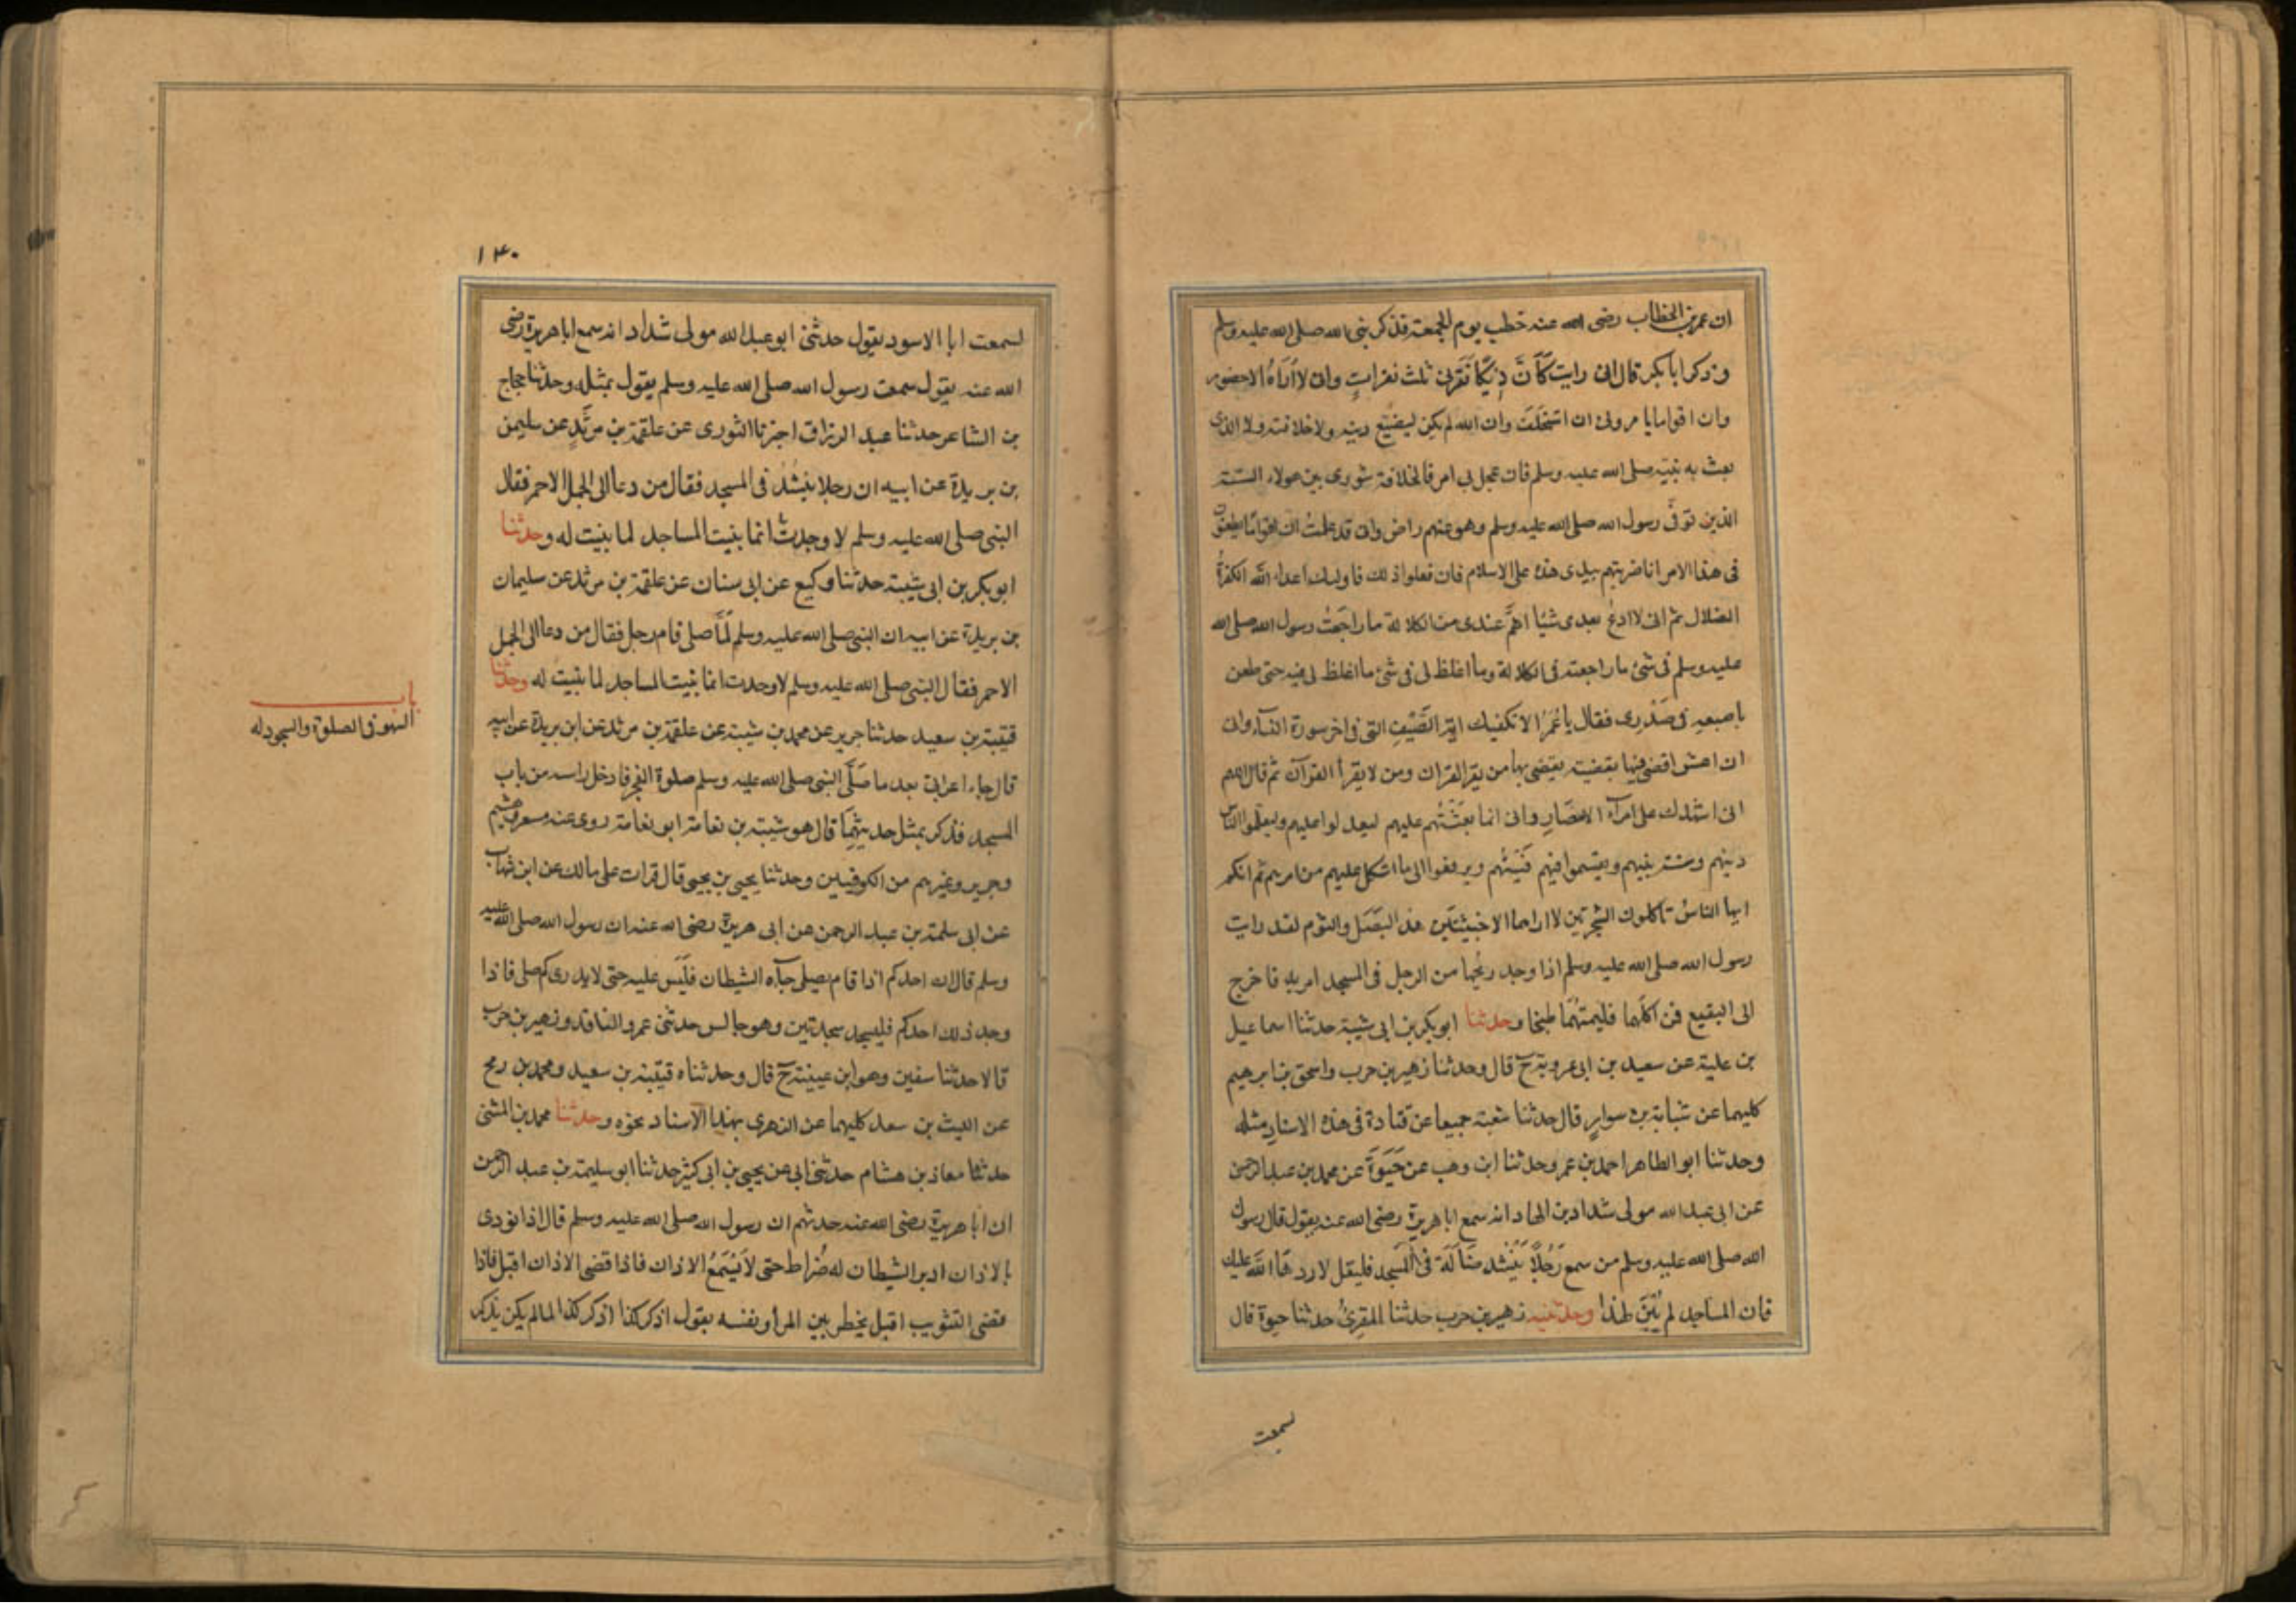 ان عمر بن الخطاب رضى الله عنه خطب يوم الجمعة فذكر نبى الله صلى الله عليه وسلم
وذكر ابا بكر قال انى رايت كَاَنَّ دِيكًا نَقَرَنى ثلث نقراتٍ وانى لا اُرَاهُ الا حضور
وان اقواما يامرونى ان استخلفَ وان الله لم يكن ليضيّع دينه ولا خلافته ولا الذى
بعث به نبيّه صلى الله عليه وسلم فان عجل بى امر فالخلافة شورى بين هولاء الستّة
الذين توفّى رسول الله صلى الله عليه وسلم وهو عنهم راض وانى قد علمتُ ان اقوامًا يطعنون
فى هذا الامر انا ضربتهم بيدى هذه على الاسلام فان فعلوا ذلك فاوليك اعداء الله الكفرةُ
الضلال ثم انى لا ادعُ بعدى شيئا اهمَّ عندى من الكلالة ما راجَعْتُ رسول الله صلى الله
عليه وسلم فى شئ ما راجعته فى الكلالة وما اغلظ لى فى شئ ما اغلظ لى فيه حتى طعن
باصبعه فى صَدْرِى فقال يا عُمَرُ الا تكفيك اية الصَّيْفِ التى فى اخر سورة النسآء وانى
ان اعش اقضى فيها بقضية يقضى بها من يقرا القران ومن لا يقرأ القرآن ثم قال اللهم
انى اشهدك على امرآء الامصَارِ وانى انما بعَثْتُهم عليهم ليعدلوا عليهم وليعلّموا الناس
دينهم وسنة نبيهم ويقسموا فيهم فَيْئَهُم ويرفعوا الى ما اشكل عليهم من امرهم ثم انكم
ايها الناسُ تاكلون الشجرتين لا اراهما الا خبيثتَين هذا البَصَل والثوم لقد رايت
رسول الله صلى الله عليه وسلم اذا وجد ريحها من الرجل فى المسجد امر به فاخرج
الى البقيع فمن اكلهما فليمتهُمَا طبخا وحدثنا ابو بكر بن ابى شيبة حدثنا اسماعيل
بن علية عن سعيد بن ابى عروبة ح قال وحدثنا زهير بن حرب واسحق بن ابرهيم
كليهما عن شبابة بن سوارٍ قال حدثنا شعبة جميعا عن قتادة فى هذه الاسنادِ مثله
وحدثنا ابو الطاهر احمد بن عمر وحدثنا ابن وهب عن حَيْوَةَ عن محمد بن عبد الرحمن
عن ابى عبد الله مولى شداد بن الهاد انه سمع ابا هريرة رضى الله عنه يقول قال رسول
الله صلى الله عليه وسلم من سمع رَجُلًا يَنْشُد ضَالَّةً فى المَسجد فليقل لا ردهَا اللّه عليك
فان المساجد لم تُبْنَ لهذا وحدثنيه زهير بن حرب حدثنا المقرئُ حدثنا حيوة قال
سمعت
١٤٠
سمعت ابا الاسود يقول حدثنى ابو عبد الله مولى شداد انه سمع ابا هريرة رضى
الله عنه يقول سمعت رسول الله صلى الله عليه وسلم يقول بمثله وحدثنا حجاج
بن الشاعر حدثنا عبد الرزاق اخبرنا الثورى عن علقمة بن مرثَدٍ عن سليمن
بن بريدة عن ابيه ان رجلا ينشُدُ فى المسجد فقال من دعا الى الجمل الاحمر فقال
النبى صلى الله عليه وسلم لا وجدتَ انما بنيت المساجد لما بنيت له وحدثنا
ابو بكر بن ابى شيبة حدثنا وكيع عن ابى سنان عن علقمة بن مرثد عن سليمان
بن بريدة عن ابيه ان النبى صلى الله عليه وسلم لَمَّا صلى قام رجل فقال من دعا الى الجمل
الاحمر فقال النبى صلى الله عليه وسلم لا وجدت انما بنيت المساجد لما بنيتْ له وحدثنا
باب
السهو فى الصلوة والسجود له
قتيبة بن سعيد حدثنا جرير عن محمد بن شيبة عن علقمة بن مرثد عن ابن بريدة عن ابيه
قال جاء اعرابى بعد ما صَلَّى النبى صلى الله عليه وسلم صلوة الفجر فادخل راسه من باب
المسجد فذكر بمثل حديثهِمَا قال هو شيبة بن نعامة ابو نعامة روى عنه مسعر هشيم
وجرير وغيرهم من الكوفيين وحدثنا يحيى بن يحيى قال قرات على مالك عن ابن شهاب
عن ابى سلمة بن عبد الرحمن عن ابى هريرة رضى الله عنه ان رسول الله صلى الله عليه
وسلم قال ان احدكم اذا قام يصلى جآءه الشيطان فلَبَس عليه حتى لا يدرى كم صلى فاذا
وجد ذلك احدكم فليسجد سجدتين وهو جالس حدثنى عمرو الناقد وزهير بن حرب
قالا حدثنا سفين وهو ابن عيينة ح قال وحدثناه قتيبة بن سعيد ومحمد بن رمح
عن الليث بن سعد كليهما عن الزهرى بهذا الاسناد نحوه وحدثنا محمد بن المثنى
حدثنا معاذ بن هشام حدثنى ابى عن يحيى بن ابى كثير حدثنا ابو سليمة بن عبد الرحمن
ان ابا هريرة رضى الله عنه حدثهم ان رسول الله صلى الله عليه وسلم قال اذا نودى
بالاذان ادبر الشيطان له ضُراط حتى لا يَسْمَعُ الاذان فاذا قضى الاذان اقبل فاذا
قضى التثويب اقبل يخطر بين المرأ ونفسه يقول اذكر كذا اذكر كذا لما لم يكن يذكر